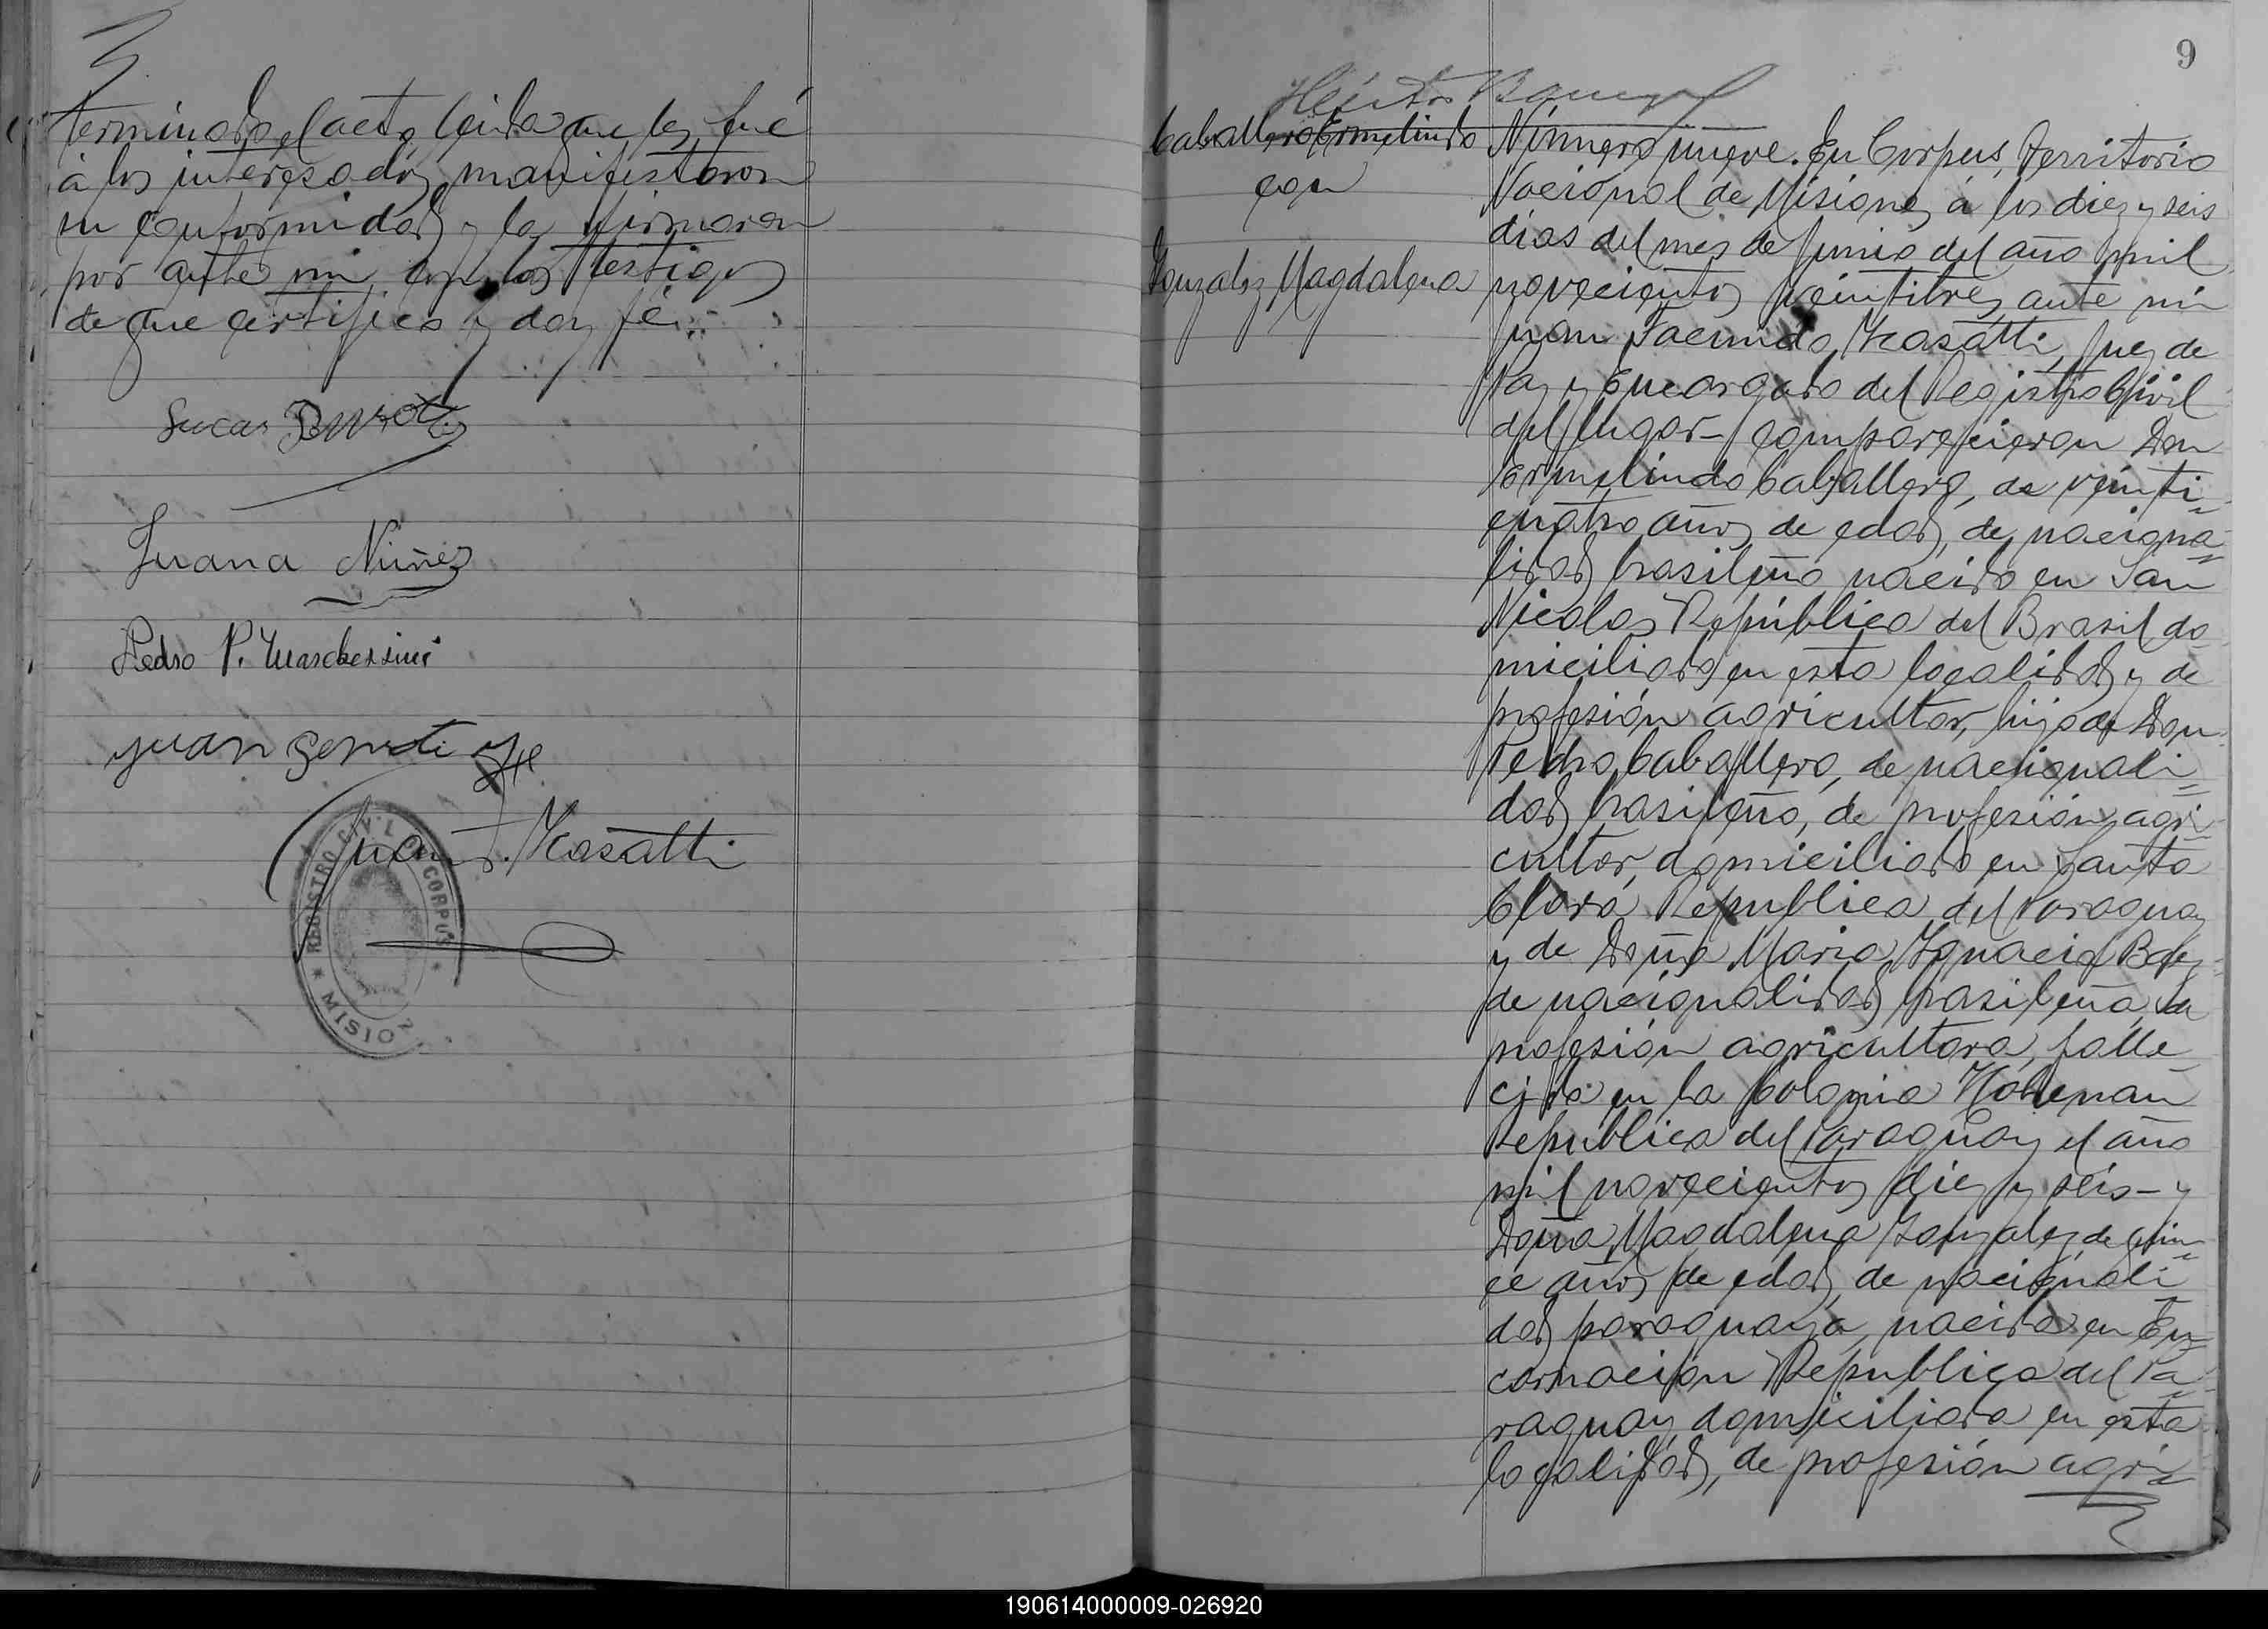 terminado el acto, leida que les fué
á los interesados, manifestaron
su conformidad y la firmaron
por ante mi, con los testigos
de que certifico y doy fé.
Lucas
Juana Nuñez
Pedro P. Marchessini
Juan
Juan F. Kasatti
REGISTRO CIVIL CORPUS
MISIO
9
Caballero Ermelindo
con
Gonzalez Magdalena
Número nueve. En Corpus, Territorio
Nacional de Misiones, á los diez y seis
dias del mes de Junio del año mil
novecientos veintitres, ante mi
Juan Facundo Kasatti, Juez de
Paz y Encargado del Registro Civil
del lugar- comparecieron Don
Ermelindo Caballero, de veinti-
cuatro años de edad, de naciona-
lidad brasileño nacido en San
Nicolas República del Brasil do-
miciliado en esta localidad y de
profesión agricultor, hijo de Don
Pedro Caballero, de nacionali-
dad brasileño, de profesión agri-
cultor, domiciliado en Santa
Clara República del Paraguay
y de Doña Maria Ignacia Baez
de nacionalidad brasileña, de
profesión agricultora, falle-
cida en la Colonia Hohenau
República del Paraguay el año
mil novecientos diez y seis- y
Doña Magdalena Gonzalez de quin-
ce años de edad, de nacionali-
dad paraguaya, nacida en En-
carnación República del Pa-
raguay, domiciliada en esta
localidad, de profesión agri-
190614000009-026920